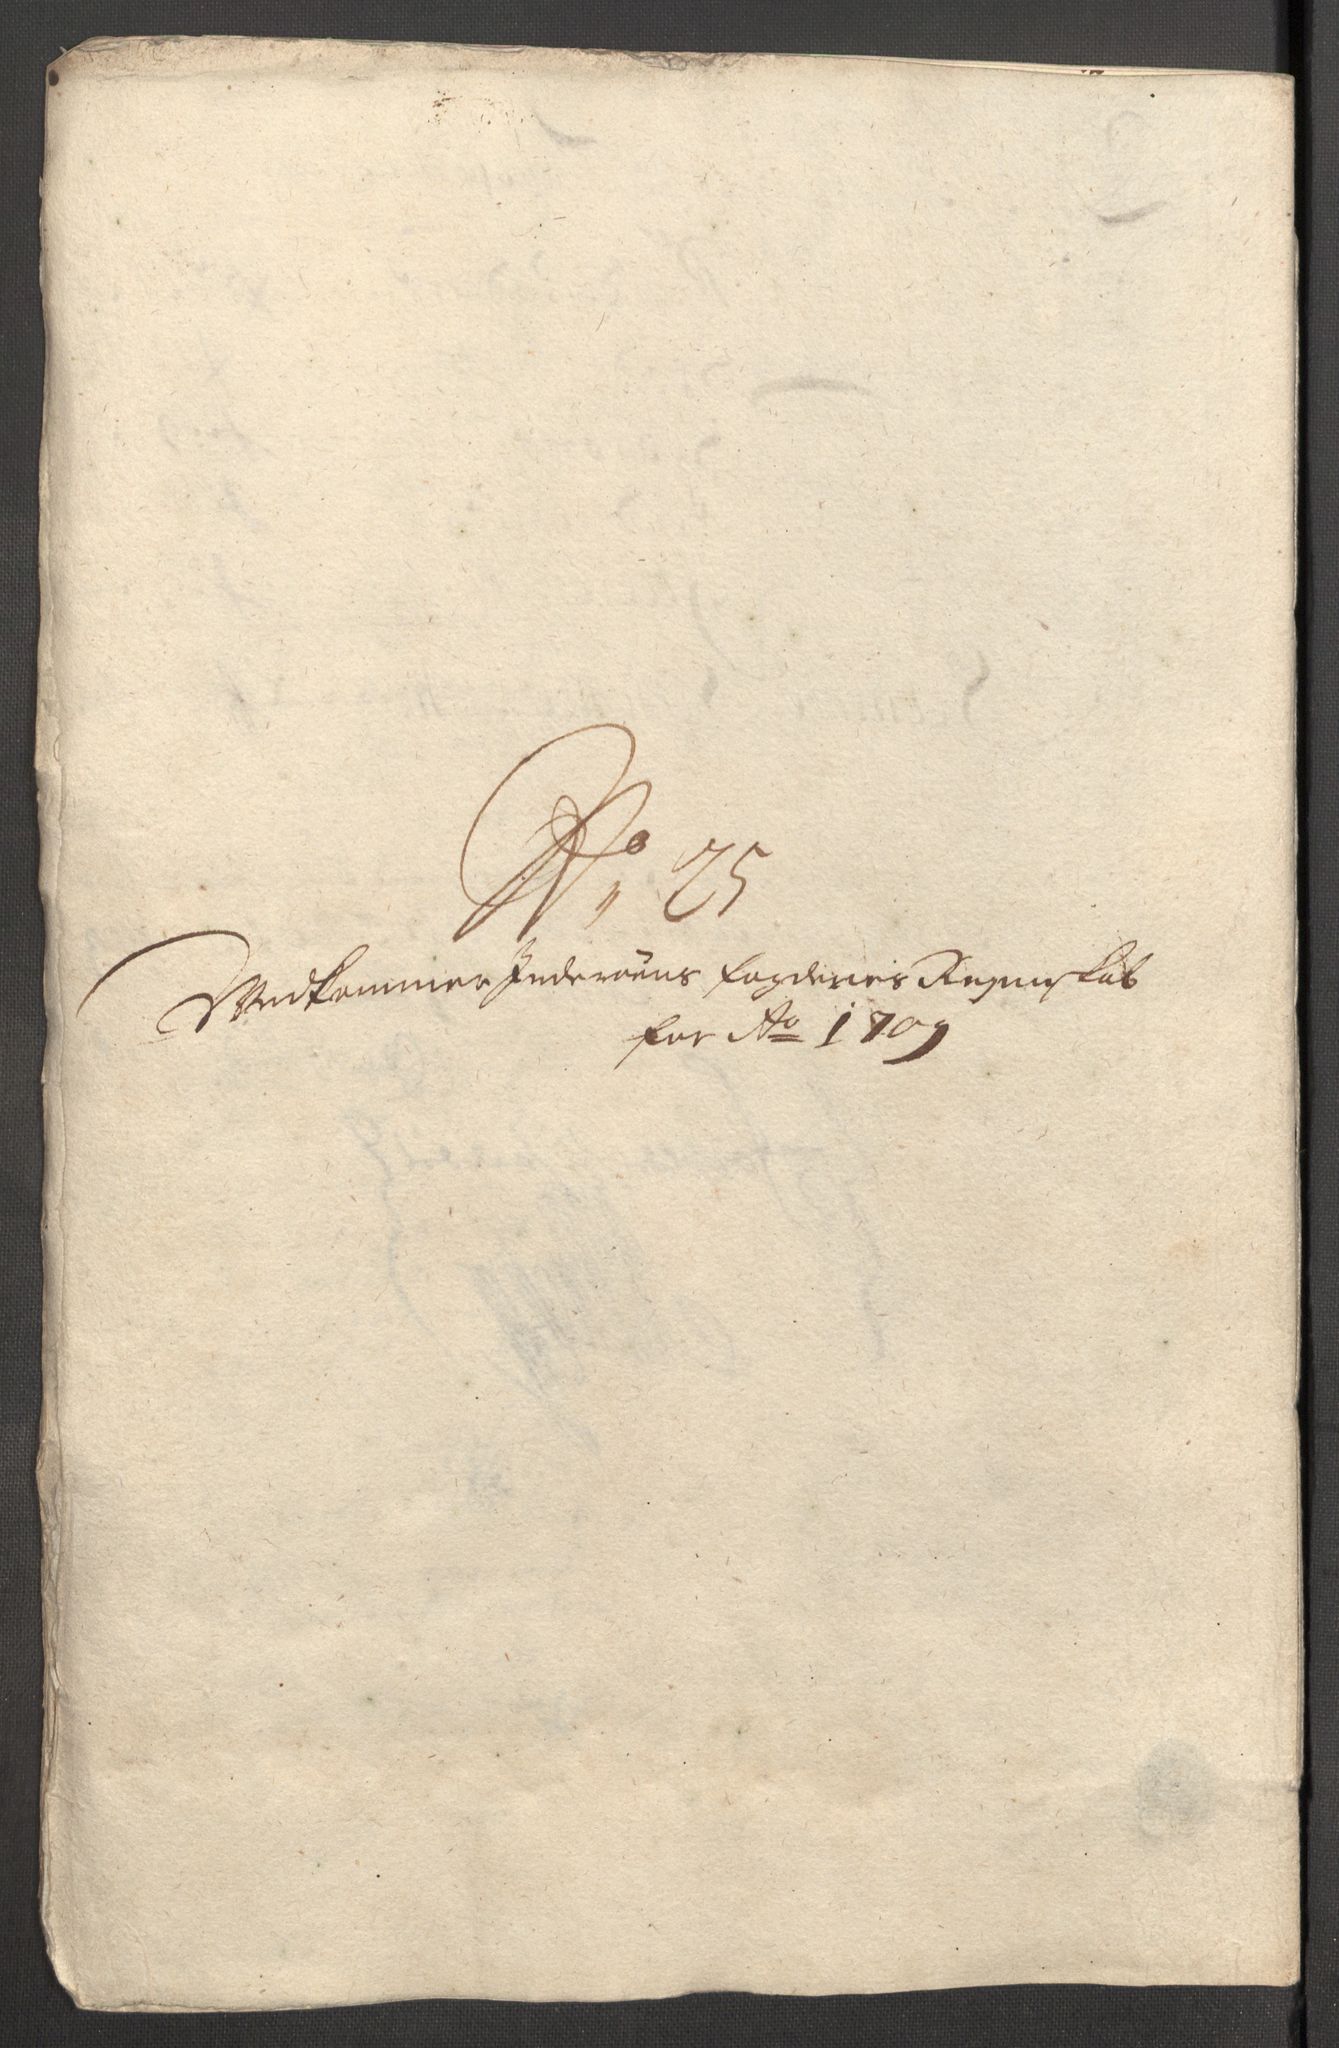 No 25
Vedkommer Inderøens fogderies Regenskab
for Ao 1709